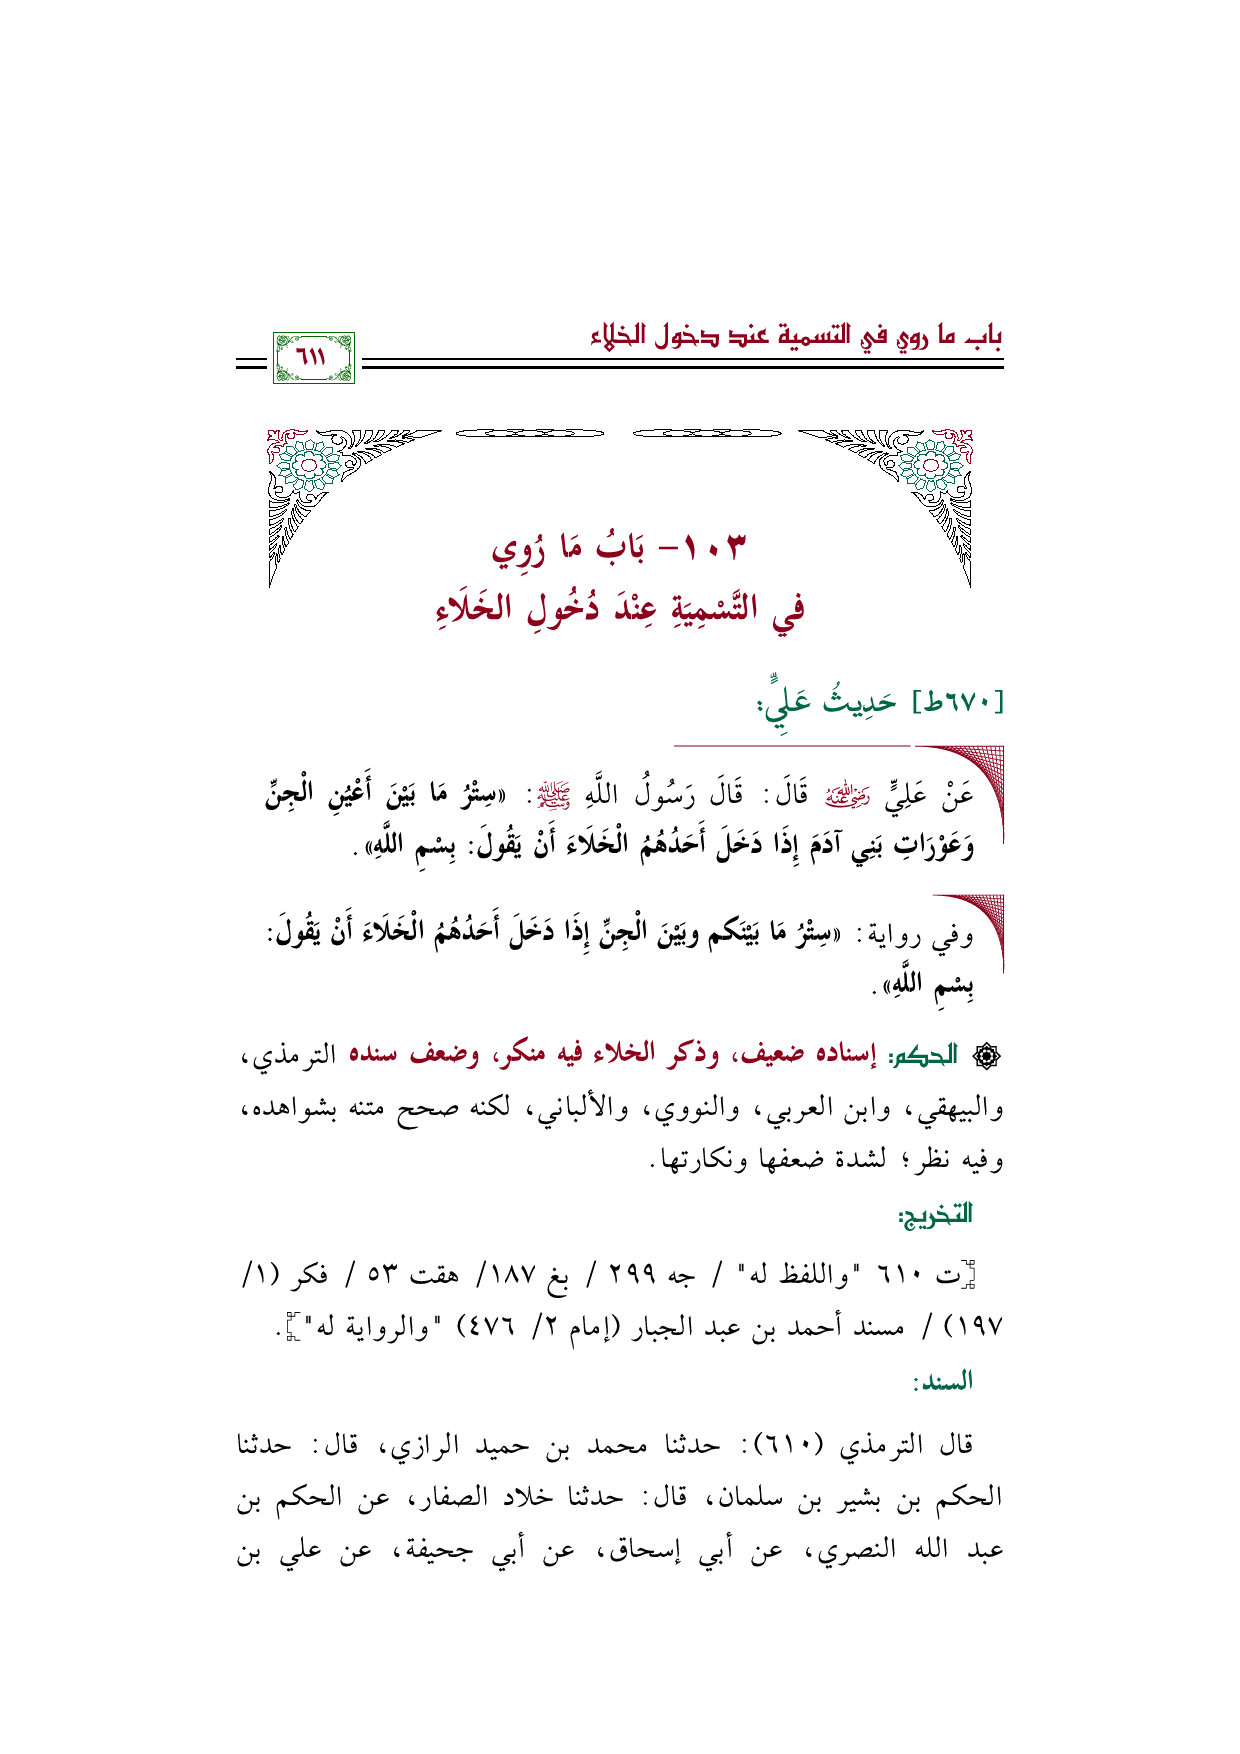 باب ما روي في التسمية عند دخول الخلاء
٦١١
١٠٣- بَابُ مَا رُوِي
في التَّسْمِيَةِ عِنْدَ دُخُولِ الخَلَاءِ
[٦٧٠ط] حَدِيثُ عَلِيٍّ:
عَنْ عَلِيٍّ رضي الله عنه قَالَ: قَالَ رَسُولُ اللَّهِ ﷺ: «سِتْرُ مَا بَيْنَ أَعْيُنِ الْجِنِّ
وَعَوْرَاتِ بَنِي آدَمَ إِذَا دَخَلَ أَحَدُهُمُ الْخَلَاءَ أَنْ يَقُولَ: بِسْمِ اللَّهِ».
وفي رواية: «سِتْرُ مَا بَيْنَكم وبَيْنَ الْجِنِّ إِذَا دَخَلَ أَحَدُهُمُ الْخَلَاءَ أَنْ يَقُولَ:
بِسْمِ اللَّهِ».
الحكم: إسناده ضعيف، وذكر الخلاء فيه منكر، وضعف سنده الترمذي،
والبيهقي، وابن العربي، والنووي، والألباني، لكنه صحح متنه بشواهده،
وفيه نظر؛ لشدة ضعفها ونكارتها.
التخريج:
[ت ٦١٠ "واللفظ له" / جه ٢٩٩ / بغ ١٨٧/ هقت ٥٣ / فكر (١/
١٩٧) / مسند أحمد بن عبد الجبار (إمام ٢/ ٤٧٦) "والرواية له"].
السند:
قال الترمذي (٦١٠): حدثنا محمد بن حميد الرازي، قال: حدثنا
الحكم بن بشير بن سلمان، قال: حدثنا خلاد الصفار، عن الحكم بن
عبد الله النصري، عن أبي إسحاق، عن أبي جحيفة، عن علي بن